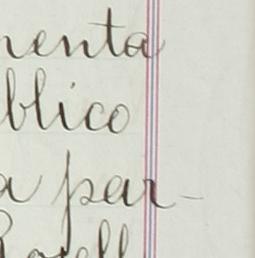 menta
blico
a par-